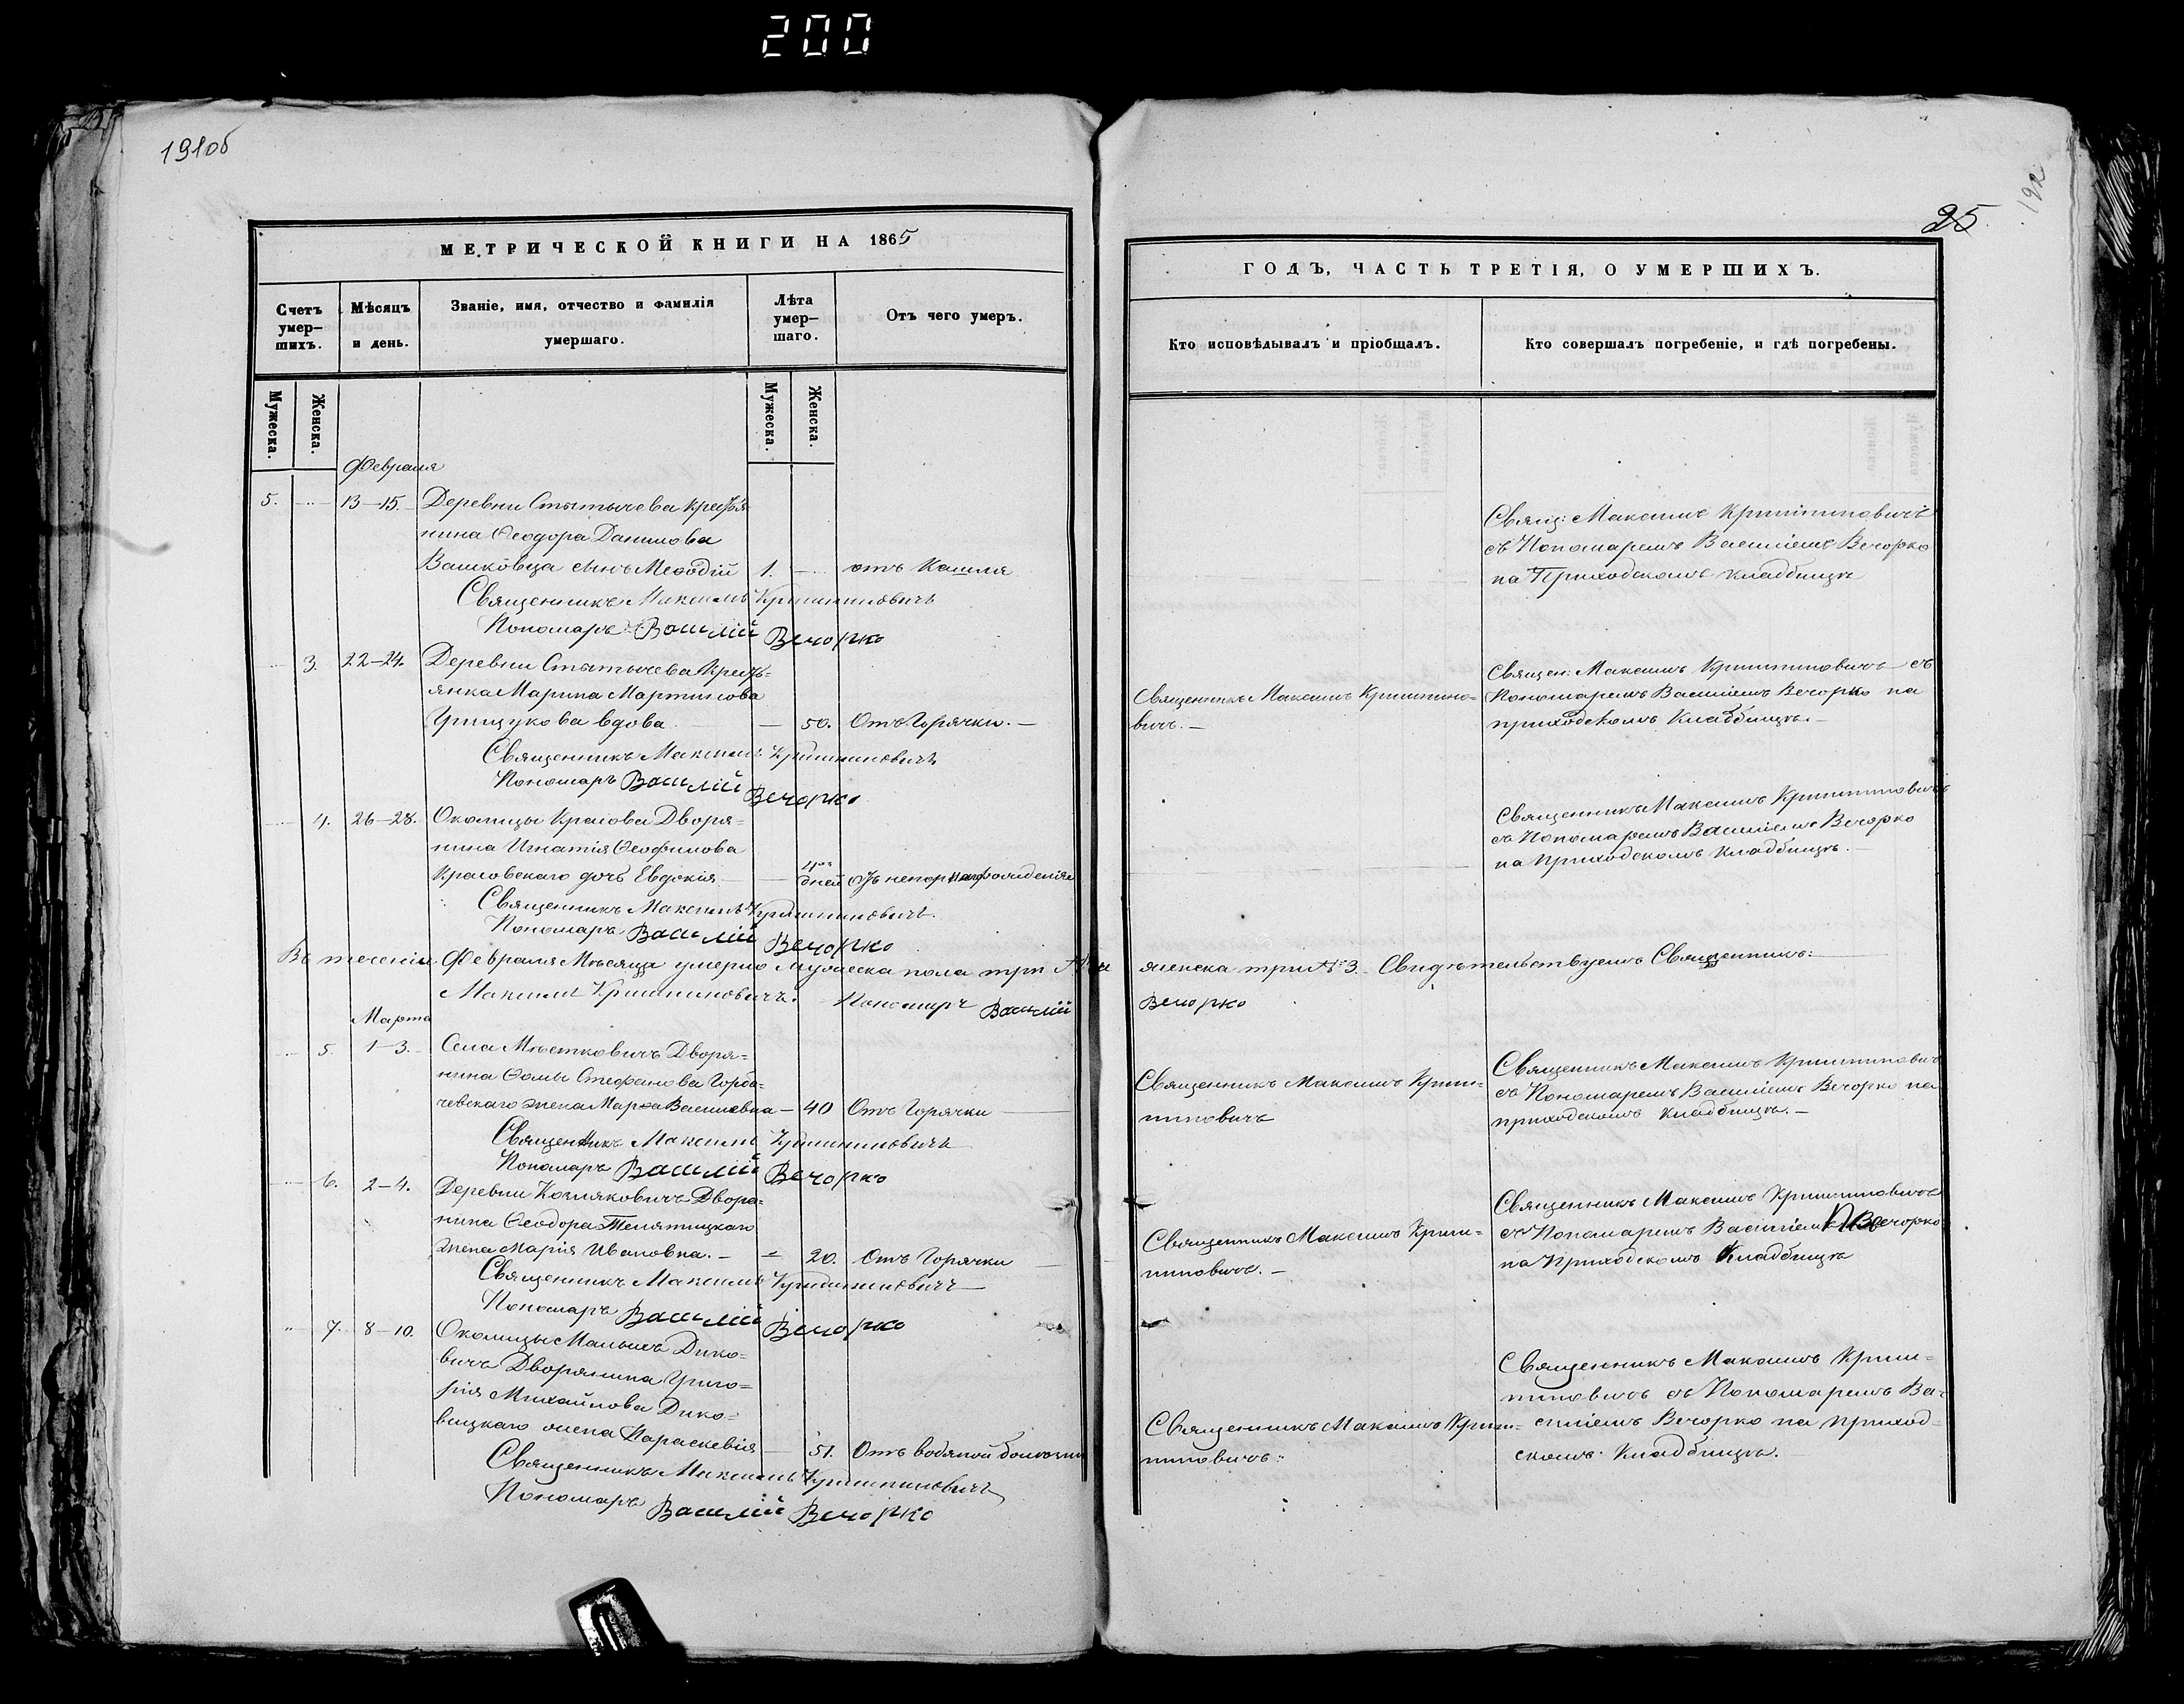 200
191об
192
25
МЕТРИЧЕСКОЙ КНИГИ НА 1865
ГОДЪ, ЧАСТЬ ТРЕТІЯ, О УМЕРШИХЪ.
Счетъ умер-шихъ.
Мѣсяцъ и день.
Званіе, имя, отчество и фамилія умершаго.
Лѣта умер-шаго.
Отъ чего умеръ.
Кто исповѣдывалъ и пріобщалъ.
Кто совершалъ погребеніе, и гдѣ погребены.
Мужеска.
Женска.
Мужеска.
Женска.
Февраля
5. 13-15. Деревни Стытычева кресть
янина Ѳеодора Данилова
Вашковца сынъ Меѳодій 1. отъ Кашля
Священникъ Максимъ Криштиновичъ
Пономарь Василій Вечорко
Свящ: Максимъ Криштиповичъ
съ Пономаремъ Василіемъ Вечорко
на Приходскомъ кладбищѣ
3. 22-24. Деревни Стытычева Кресть-
янка Марина Мартинова
Грицукова вдова 50. Отъ Горячки.
Священникъ Максимъ Криштиповичъ
Пономарь Василій Вечорко
Священникъ Максимъ Криштипо-
вичъ.
Священ: Максимъ Криштиповичъ съ
Пономаремъ Василіемъ Вечорко на
приходскомъ Кладбищѣ.
4. 26-28. Околицы Красова Дворя-
нина Игнатія Ѳеофилова
Красовскаго дочь Евдокія дней
Священникъ Максимъ Криштиповичъ.
Пономарь Василій Вечорко
Священникъ Максимъ Криштиповичъ
съ Пономаремъ Василіемъ Вечорко
на Приходскомъ Кладбищѣ.
Въ теченіи Февраля Мѣсяца умерло Мужеска пола три женска три № 3. Свидѣтельствуемъ Священникъ:
Максимъ Криштиповичъ. Пономарь Василій Вечорко
Марта
5. 1-3. Села Мѣстковичъ Дворя-
нина Ѳомы Стефанова Горба-
чевскаго жена Марѳа Василевна 40 Отъ Горячки
Священникъ Максимъ Криштиповичъ
Пономарь Василій Вечорко
Священникъ Максимъ Криш-
типовичъ
Священникъ Максимъ Криштипович
съ Пономаремъ Василіемъ Вечорко на
приходскомъ кладбищѣ.
6. 2-4. Деревни Дворя-
нина Ѳеодора Телятицкаго
жена Марія Ивановна. 20. Отъ Горячки
Священникъ Максимъ Криштиповичъ
Пономарь Василій Вечорко
Священникъ Максимъ Криш-
типовичъ.
Священникъ Максимъ Криштиповичъ
съ Пономаремъ Василіемъ Вечорко
на Приходскомъ Кладбищѣ
7. 8-10. Околицы Малыхъ Дико-
вичъ Дворянина Григо-
рія Михайлова Дико-
вицкаго жена Параскевія 51. Отъ водяной болѣзни
Священникъ Максимъ Криштиповичъ
Пономарь Василій Вечорко
Священникъ Максимъ Криш-
типовичъ:
Священникъ Максимъ Криш-
типовичъ съ Пономаремъ Ва-
силіемъ Вечорко на приход-
скомъ Кладбищѣ.